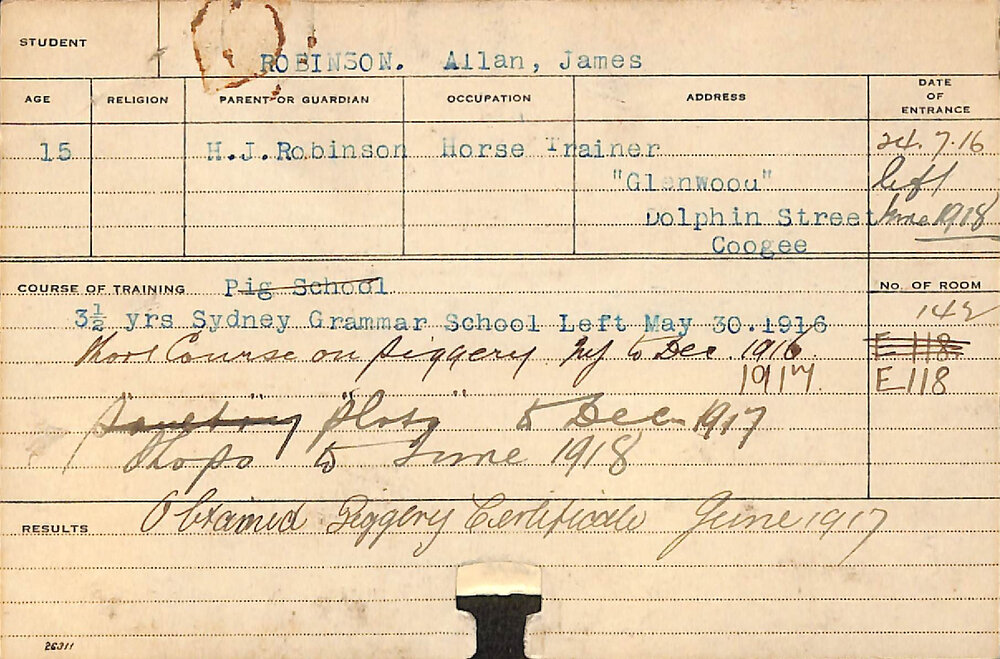 STUDENT
ROBINSON. Allan, James
AGE RELIGION PARENT OR GUARDIAN OCCUPATION ADDRESS DATE OF ENTRANCE
15 H.J.Robinson Horse Trainer 24.7.16
"Glenwood" left
Dolphin Street June 1918
Coogee
COURSE OF TRAINING Pig School No. OF ROOM
3½ yrs Sydney Grammar School Left May 30.1916 142
Short Course on Piggery to Dec. 1916 E 118
1917 E 118
Poultry "Plots" to Dec 1917
Shops to June 1918
RESULTS Obtained Piggery Certificate June 1917
26311